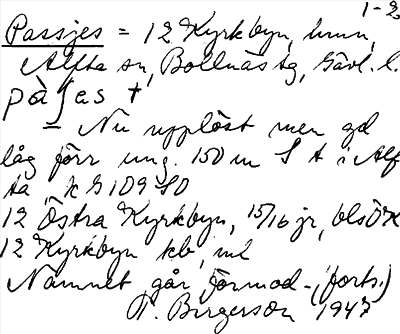 1-2
Passjes = 12 Kyrkbyn, hmn,
Alfta sn, Bollnäs tg, Gävl. l.
pàʃas †
= Nu upplöst men gd
låg förr ung. 150 m S t i Alf
ta k G 109 SO
12 Östra Kyrkbyn, 15/16 jr, bls ÖK
12 Kyrkbyn kb, ml
Namnet går förmod- (forts.)
N. Birgerson 1947